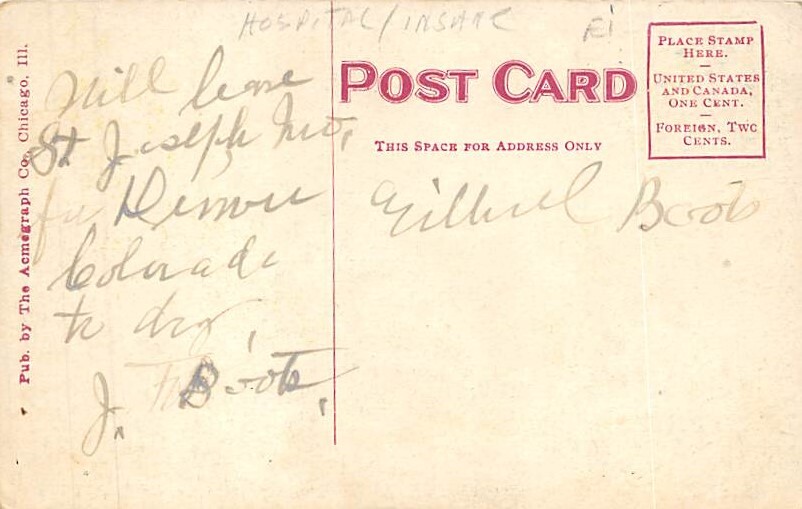 HOSPITAL/INSANE
Pub. by The Acmegraph Co., Chicago, Ill.
Will leave
St Joseph Mo.
for Denver
Colorado
to day,
J. Boots.
POST CARD
THIS SPACE FOR ADDRESS ONLY
Boots
PLACE STAMP
HERE.
—
UNITED STATES
AND CANADA,
ONE CENT.
—
FOREIGN, TWO
CENTS.